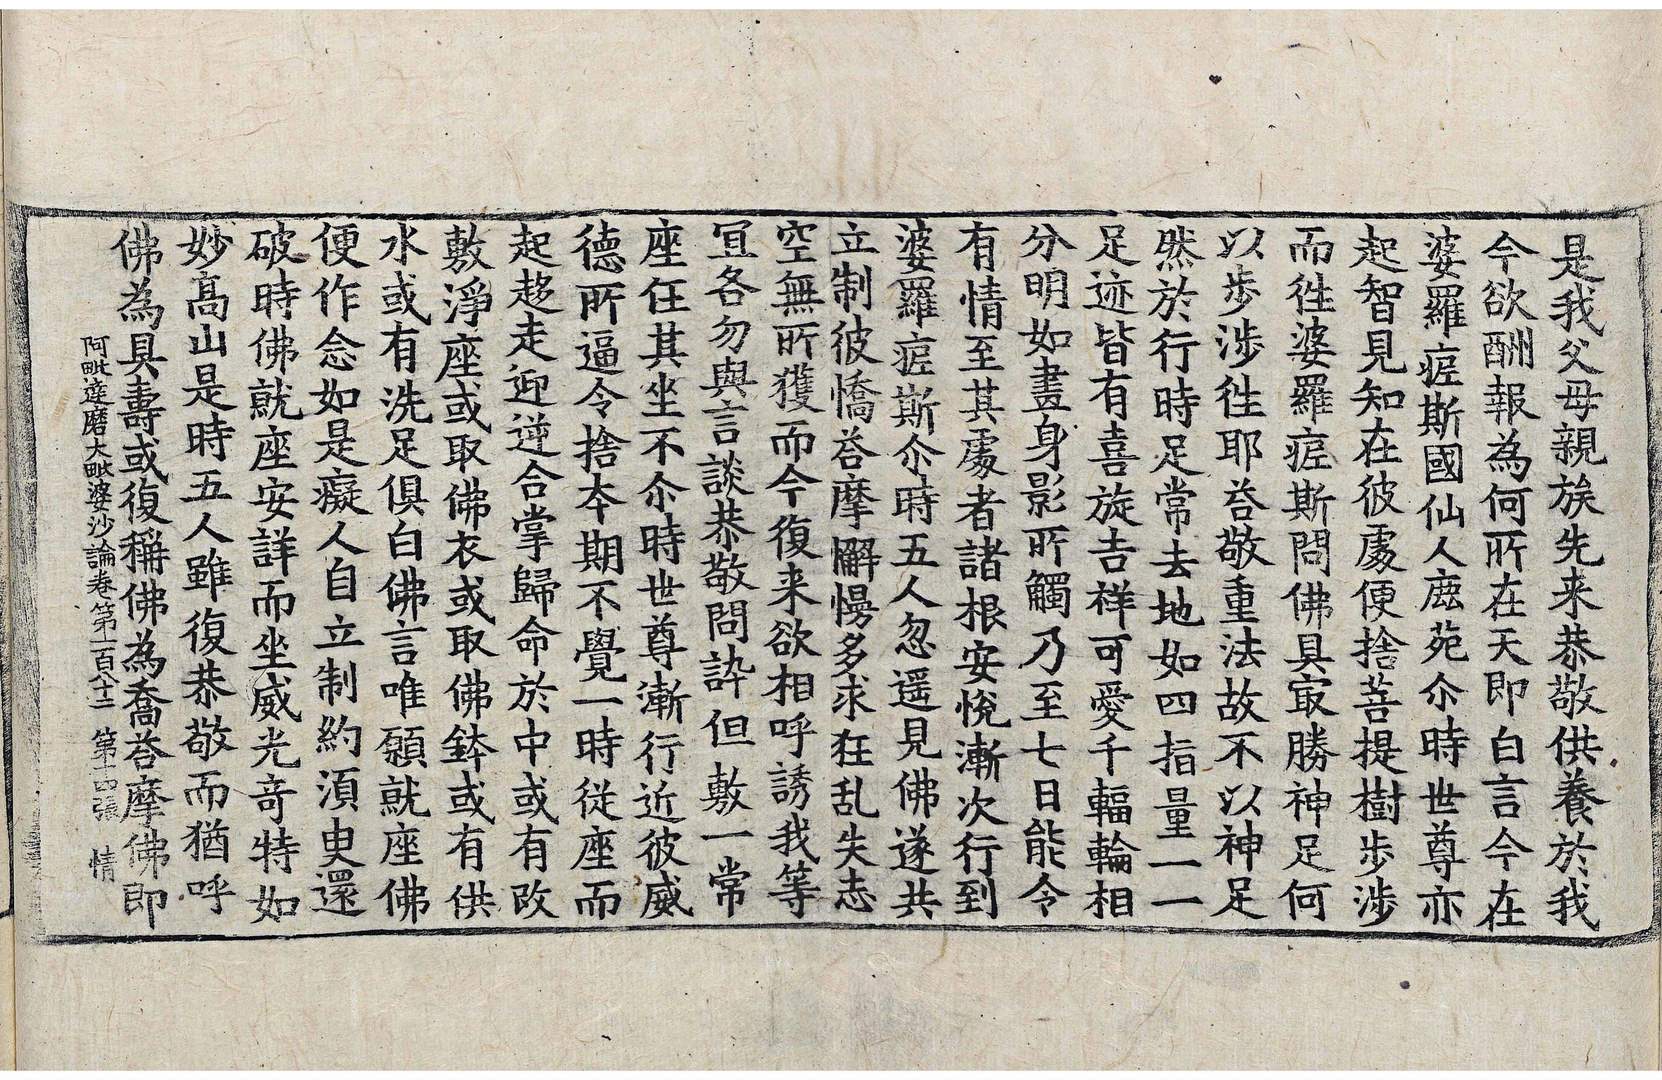 是我父母親族先来恭敬供養於我
今欲酬報為何所在天即白言今在
婆羅痆斯國仙人鹿苑尒時世尊亦
起智見知在彼處便捨菩提樹步涉
而徃婆羅痆斯問佛具㝡勝神足何
以步涉徃耶荅敬重法故不以神足
然於行時足常去地如四指量一一
足迹皆有喜旋吉祥可愛千輻輪相
分明如畫身影所觸乃至七日能令
有情至其處者諸根安悅漸次行到
婆羅痆斯尒時五人忽遥見佛遂共
立制彼憍荅摩懈慢多求狂乱失志
空無所獲而今復来欲相呼誘我等
冝各勿與言談恭敬問訊但敷一常
座任其坐不尒時世尊漸行近彼威
德所逼令捨本期不覺一時從座而
起趍走迎逆合掌歸命於中或有改
敷淨座或取佛衣或取佛鉢或有供
水或有洗足俱白佛言唯願就座佛
便作念如是癡人自立制約湏臾還
破時佛就座安詳而坐威光竒特如
妙高山是時五人雖復恭敬而猶呼
佛為具壽或復稱佛為喬荅摩佛即
阿毗達磨大毗婆沙論卷第一百八十二 第十四張 情